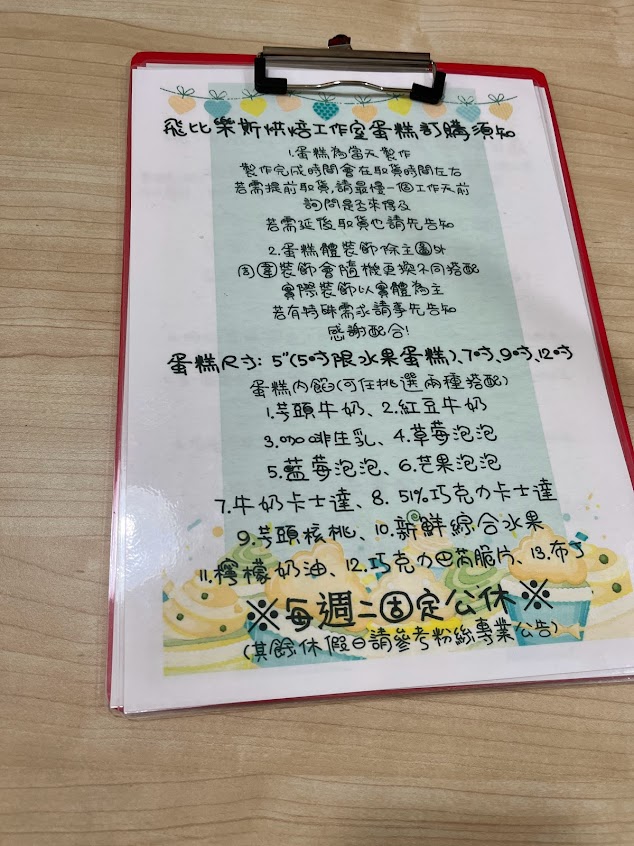 飛比樂斯烘焙工作室蛋糕訂購須知
1.蛋糕為當天製作
製作完成時間會在取貨時間左右
若需提前取貨,請最慢一個工作天前
詢問是否來得及
若需延後取貨也請先告知
2.蛋糕體裝飾除主圖外
周圍裝飾會隨機更換不同搭配
實際裝飾以實體為主
若有特殊需求請事先告知
感謝配合!
蛋糕尺寸: 5"(5吋限水果蛋糕)、7吋、9吋、12吋
蛋糕內餡(可任挑選兩種搭配)
1.芋頭牛奶、2.紅豆牛奶
3.咖啡生乳、4.草莓泡泡
5.藍莓泡泡、6.芒果泡泡
7.牛奶卡士達、8. 51%巧克力卡士達
9.芋頭核桃、10.新鮮綜合水果
11.檸檬奶油、12.巧克力巴芮脆片、13.布丁
※每週二固定公休※
(其餘休假日請參考粉絲專業公告)